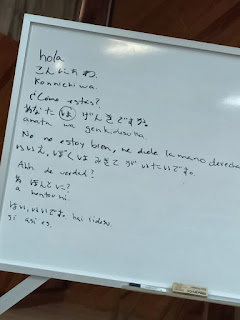 hola
こんにちわ.
Konnichiwa.
¿Cómo estas?
あなた は げんきですか?
anata wa genkidesuka.
No no estoy bien, me duele la mano derecha
いいえ, ぼくは みぎて が いたいです.
Ahh de verdad?
あ ほんとに?
a hontoni.
はい, いいです. hai
si asi es.